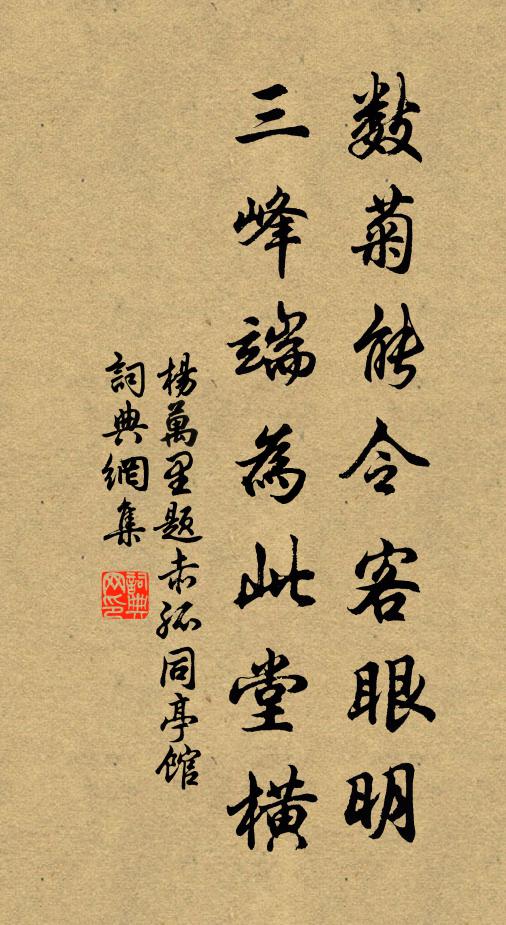 數菊能令客眼明
三峰端為此堂橫
楊萬里題赤孤同亭館
詞典網集
詞典網印